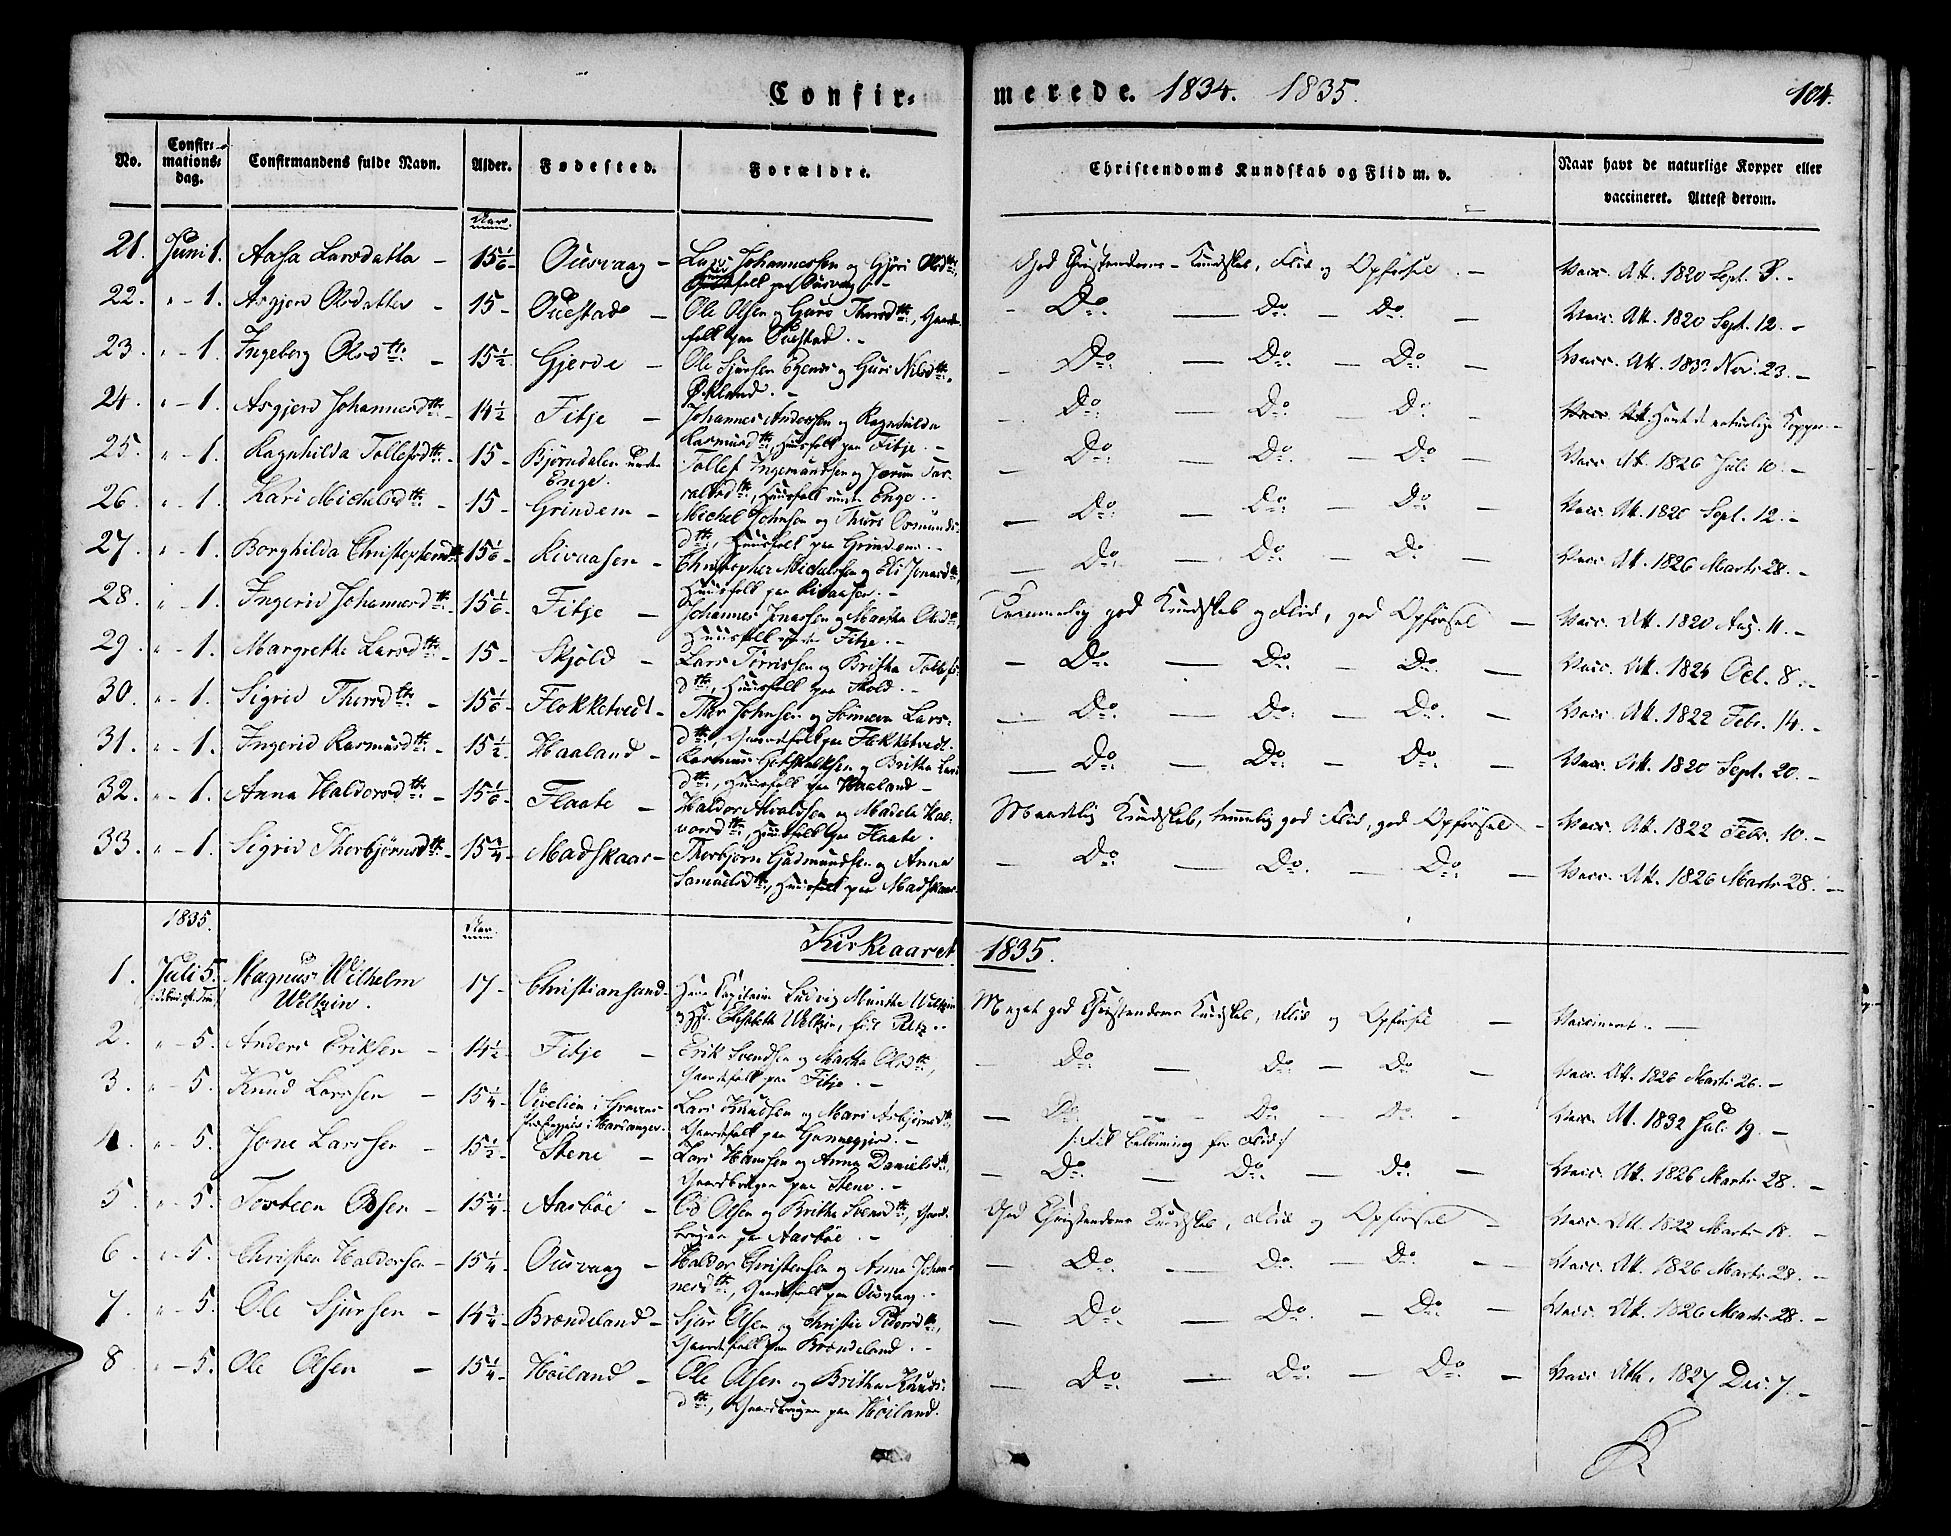 Confir=
merede. 1834. 1835.
104.
No.
Confir=mations=dag.
Confirmandens fulde Navn.
Alder.
Fødested.
Forældre.
Christendoms Kundskab og Flid m. v.
Naar havt de naturlige Kopper eller vaccineret. Attest derom.
Aar.
21. Juni 1. Aasa Larsdatter - 15 1/6 - Ousvaag - Lars Johannessen og Gjøri Olsdtr, Huusfolk paa Ousvaag. - God Christendoms-Kundskab, Flid og Opførsel. - Vacc. Att. 1820 Sept. 8. -
22. " - 1. Asgjerd Olsdatter - 15 - Ouestad - Ole Olsen og Guro Thorsdtr, Gaardfolk paa Ouestad. - Do. - Do. - Do. - Vacc. Att. 1820 Sept. 12. -
23. " - 1. Ingeborg Olsdtr. - 15 1/2 - Gjerde - Ole Sjursen og Guri Nilsdtr, Økland. - Do. - Do. - Do. - Vacc. Att. 1832 Nov. 23. -
24. " - 1. Asgjerd Johannesdtr - 14 1/2 - Fitje - Johannes Andersen og Ragnhilda Rasmusdtr, Huusfolk paa Fitje. - Do. - Do. - Do. - Havt de naturlige Kopper. -
25. " - 1. Ragnhilda Tollefsdtr - 15 - Bjørndalen under Enge. Tollef Ingemundsen og Jorun Torvaldsdtr, Huusfolk under Enge. - Do. - Do. - Do. - Vacc. Att. 1826 Juli 10. -
26. " - 1. Kari Michelsdtr - 15 - Grindem - Michel Johnsen og Thuri Osmundsdtr, Huusfolk paa Grindem. - Do. - Do. - Do. - Vacc. Att. 1820 Sept. 12. -
27. " - 1. Borghilda Christophersdtr 15 1/6 - Kivaasen - Christopher Michelsen og Eli Jonasdtr, Huusfolk paa Kivaasen. - Do. - Do. - Do. - Vacc. Att. 1826 Marts 28. -
28. " - 1. Ingerid Johannesdtr - 15 1/6 - Fitje - Johannes Jonassen og Martha Olsdtr, Huusfolk under Fitje. - Temmelig god Kundskab og Flid, god Opførsel - Vacc. Att. 1820 Aug. 11. -
29. " - 1. Margrethe Larsdtr - 15 - Skjold - Lars Tørrissen og Britha Tollefsdtr, Huusfolk paa Skold. - Do. - Do. - Do. - Vacc. Att. 1826 Oct. 8. -
30. " - 1. Sigrid Thorsdtr. - 15 1/6 - Flokketvedt - Thor Johnsen og Synneva Larsdtr, Gaardfolk paa Flokketvedt. - Do. - Do. - Do. - Vacc. Att. 1822 Febr. 14. -
31. " - 1. Ingerid Rasmusdtr - 15 1/2 - Haaland - Rasmus Gotskalksen og Britha Larsdtr, Huusfolk paa Haaland - Do. - Do. - Do. - Vacc. Att. 1820 Sept. 20. -
32. " - 1. Anna Haldorsdtr - 15 1/6 - Flaate - Haldor Alvaldsen og Madela Halvorsdtr, Huusfolk paa Flaate. Maadelig Kundskab, temmelig god Flid, god Opførsel - Vacc. Att. 1822 Febr. 10. -
33. " - 1. Sigrid Thorbjørnsdtr - 15 3/4 - Madskaar - Thorbjørn Gudmundsen og Anna Samuelsdtr, Huusfolk paa Madskaar. - Do. - Do. - Do. - Vacc. Att. 1826 Marts 28. -
1835.
Aar.
Kirkeaaret 1835.
1. Juli 5. Magnus Wilhelm Weltzin. 17 - Christiansand - Herr Capitain Ludvig Munthe Weltzin og Elisabeth Weltzin, fød - Meget god Christendoms Kundskab, Flid og Opførsel - Vaccineret. -
2. " - 5. Anders Eriksen - 14 1/2 - Fitje - Erik Svendsen og Martha Olsdtr, Gaardfolk paa Fitje. - Do. - Do. - Do. - Vacc. Att. 1826 Marts 26. -
3. " - 5. Knud Larssen - 15 1/4 - i Gravens Præstegjeld i Hardanger. Lars Knudsen og Mari Asbjørnsdtr, Gaardfolk paa Gunnegjerd. - Do. - Do. - Do. /: Fik Belønning for Flid :/ Vacc. Att. 1832 Juli 19. -
4. " - 5. Jone Larssen - 15 1/2 - Stene - Lars Hansen og Anna Danielsdtr, Gaardbruger paa Stene. - Do. - Do. - Do. - Vacc. Att. 1826 Marts 28. -
5 " - 5. Tosteen Olsen - 15 1/4 - Aasbøe - Ole Olsen og Britha Svensdtr, Gaardbruger paa Aasbøe. - God Christendoms Kundskab, Flid og Opførsel - Vacc. Att. 1822 Marts 18. -
6. " - 5. Christen Haldorsen - 15 1/4 - Ousvaag - Haldor Christensen og Anna Johannesdtr, Gaardfolk paa Ousvaag. - Do. - Do. - Do. - Vacc. Att. 1826 Marts 28. -
7. " - 5. Ole Sjursen - 14 3/4 - Brøndeland - Sjur Olsen og Christie Pedersdtr, Gaardfolk paa Brøndeland. - Do. - Do. - Do. - Vacc. Att. 1826 Marts 28. -
8 " - 5. Ole Olsen - 15 1/4 - Høiland - Ole Olsen og Britha Knudsdtr, Gaardbruger paa Høiland. - Do. - Do. - Do. - Vacc. Att. 1827 Dec. 7. -